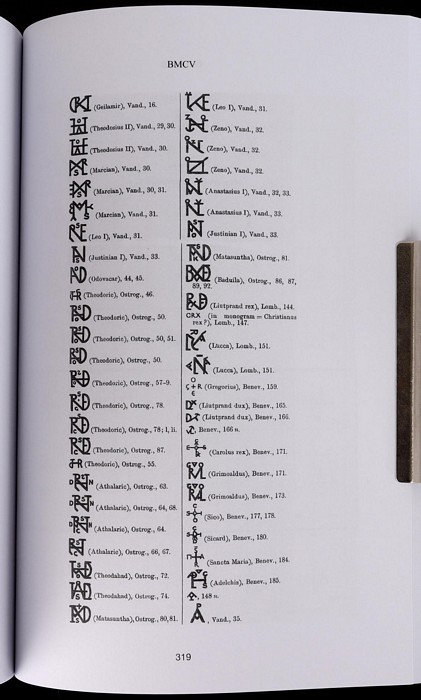 BMCV
(Geilamir), Vand., 16.
(Theodosius II), Vand., 29, 30.
(Theodosius II), Vand., 30.
(Marcian), Vand., 30.
(Marcian), Vand., 30, 31.
(Marcian), Vand., 31.
(Leo I), Vand., 31.
(Justinian I), Vand., 33.
(Odovacar), 44, 45.
(Theodoric), Ostrog., 46.
(Theodoric), Ostrog., 50.
(Theodoric), Ostrog., 50, 51.
(Theodoric), Ostrog., 50.
(Theodoric), Ostrog., 57-9.
(Theodoric), Ostrog., 78.
(Theodoric), Ostrog., 78;
(Theodoric), Ostrog., 87.
(Theodoric), Ostrog., 55.
(Athalaric), Ostrog., 63.
(Athalaric), Ostrog., 64, 68.
(Athalaric), Ostrog., 64.
(Athalaric), Ostrog., 66, 67.
(Theodahad), Ostrog., 72.
(Theodahad), Ostrog., 74.
(Matasuntha), Ostrog., 80, 81.
(Leo I), Vand., 31.
(Zeno), Vand., 32.
(Zeno), Vand., 32.
(Zeno), Vand., 32.
(Anastasius I), Vand., 32, 33.
(Anastasius I), Vand., 33.
(Justinian I), Vand., 33.
(Matasuntha), Ostrog., 81.
(Baduila), Ostrog., 86, 87,
89, 92.
(Liutprand rex), Lomb., 144.
CRX (in monogram = Christianus
rex?), Lomb., 147.
(Lucca), Lomb., 151.
(Lucca), Lomb., 151.
(Gregorius), Benev., 159.
(Liutprand dux), Benev., 165.
(Liutprand dux), Benev., 166.
Benev., 166 n.
(Carolus rex), Benev., 171.
(Grimoaldus), Benev., 171.
(Grimoaldus), Benev., 173.
(Sico), Benev., 177, 178.
(Sicard), Benev., 180.
(Sancta Maria), Benev., 184.
(Adelchis), Benev., 185.
, 148 n.
, Vand., 35.
319